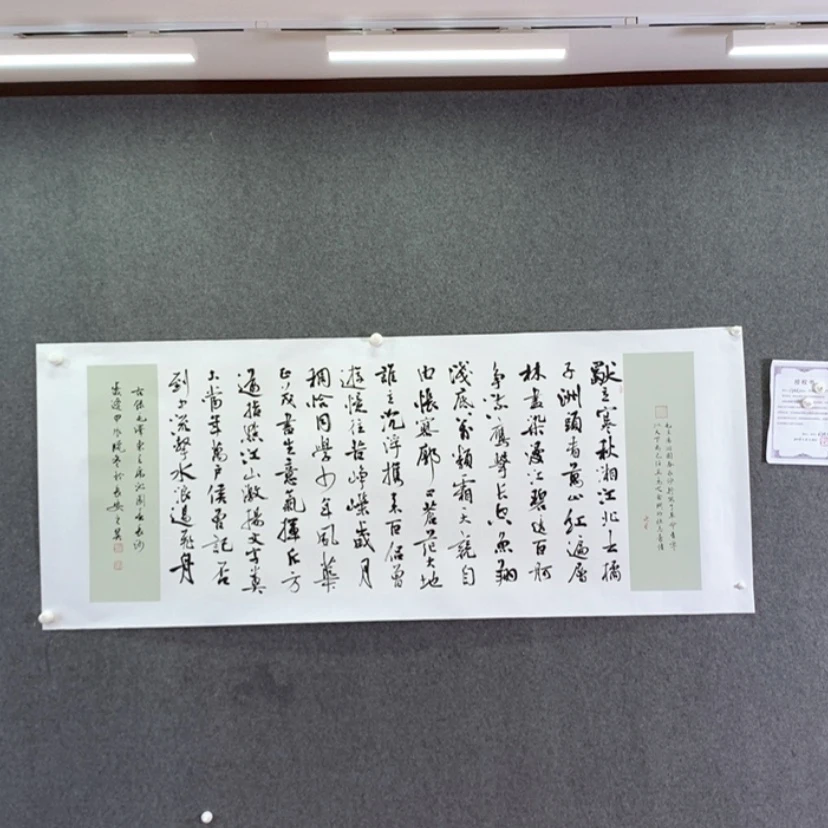 獨立寒秋湘江北去橘
子洲頭看萬山紅遍層
林盡染漫江碧透百舸
争流鷹擊長空魚翔
淺底萬類霜天競自
由悵寥廓問蒼茫大地
誰主沉浮攜來百侣曾
遊憶往昔崢嶸歲月
稠恰同學少年風華
正茂書生意氣揮斥方
遒指點江山激揚文字糞
土當年萬戶侯曾記否
到中流擊水浪遏飛舟
右録毛澤東主席沁園春長沙
歲逢甲辰晚冬於長安